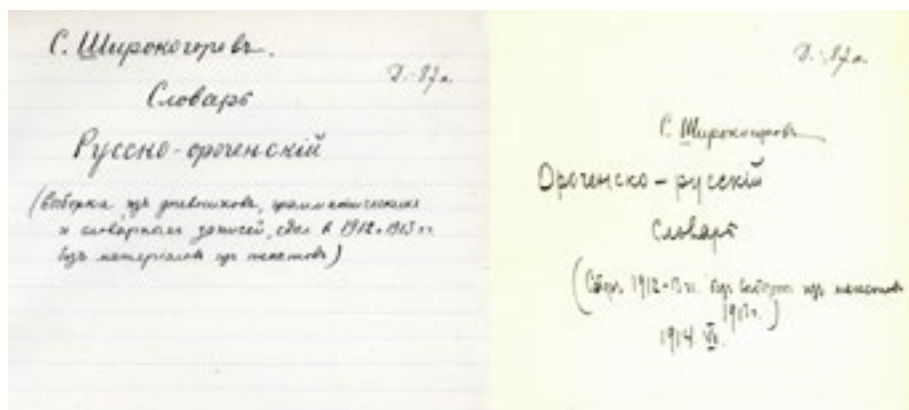 С. Широкогоровъ.
Д.-87а.
Словарь
Русско-ороченскій
(Выборка изъ дневниковъ, грамматическихъ
и словарныхъ записей, сдел. в 1912 и 1913 гг.
безъ матерьяловъ изъ текстовъ)
Д.-87а.
С. Широкогоровъ
Ороченско-русскій
Словарь
(Сбор. 1912-13 г. безъ выборки изъ текстовъ
1913 г.)
1914. VI.